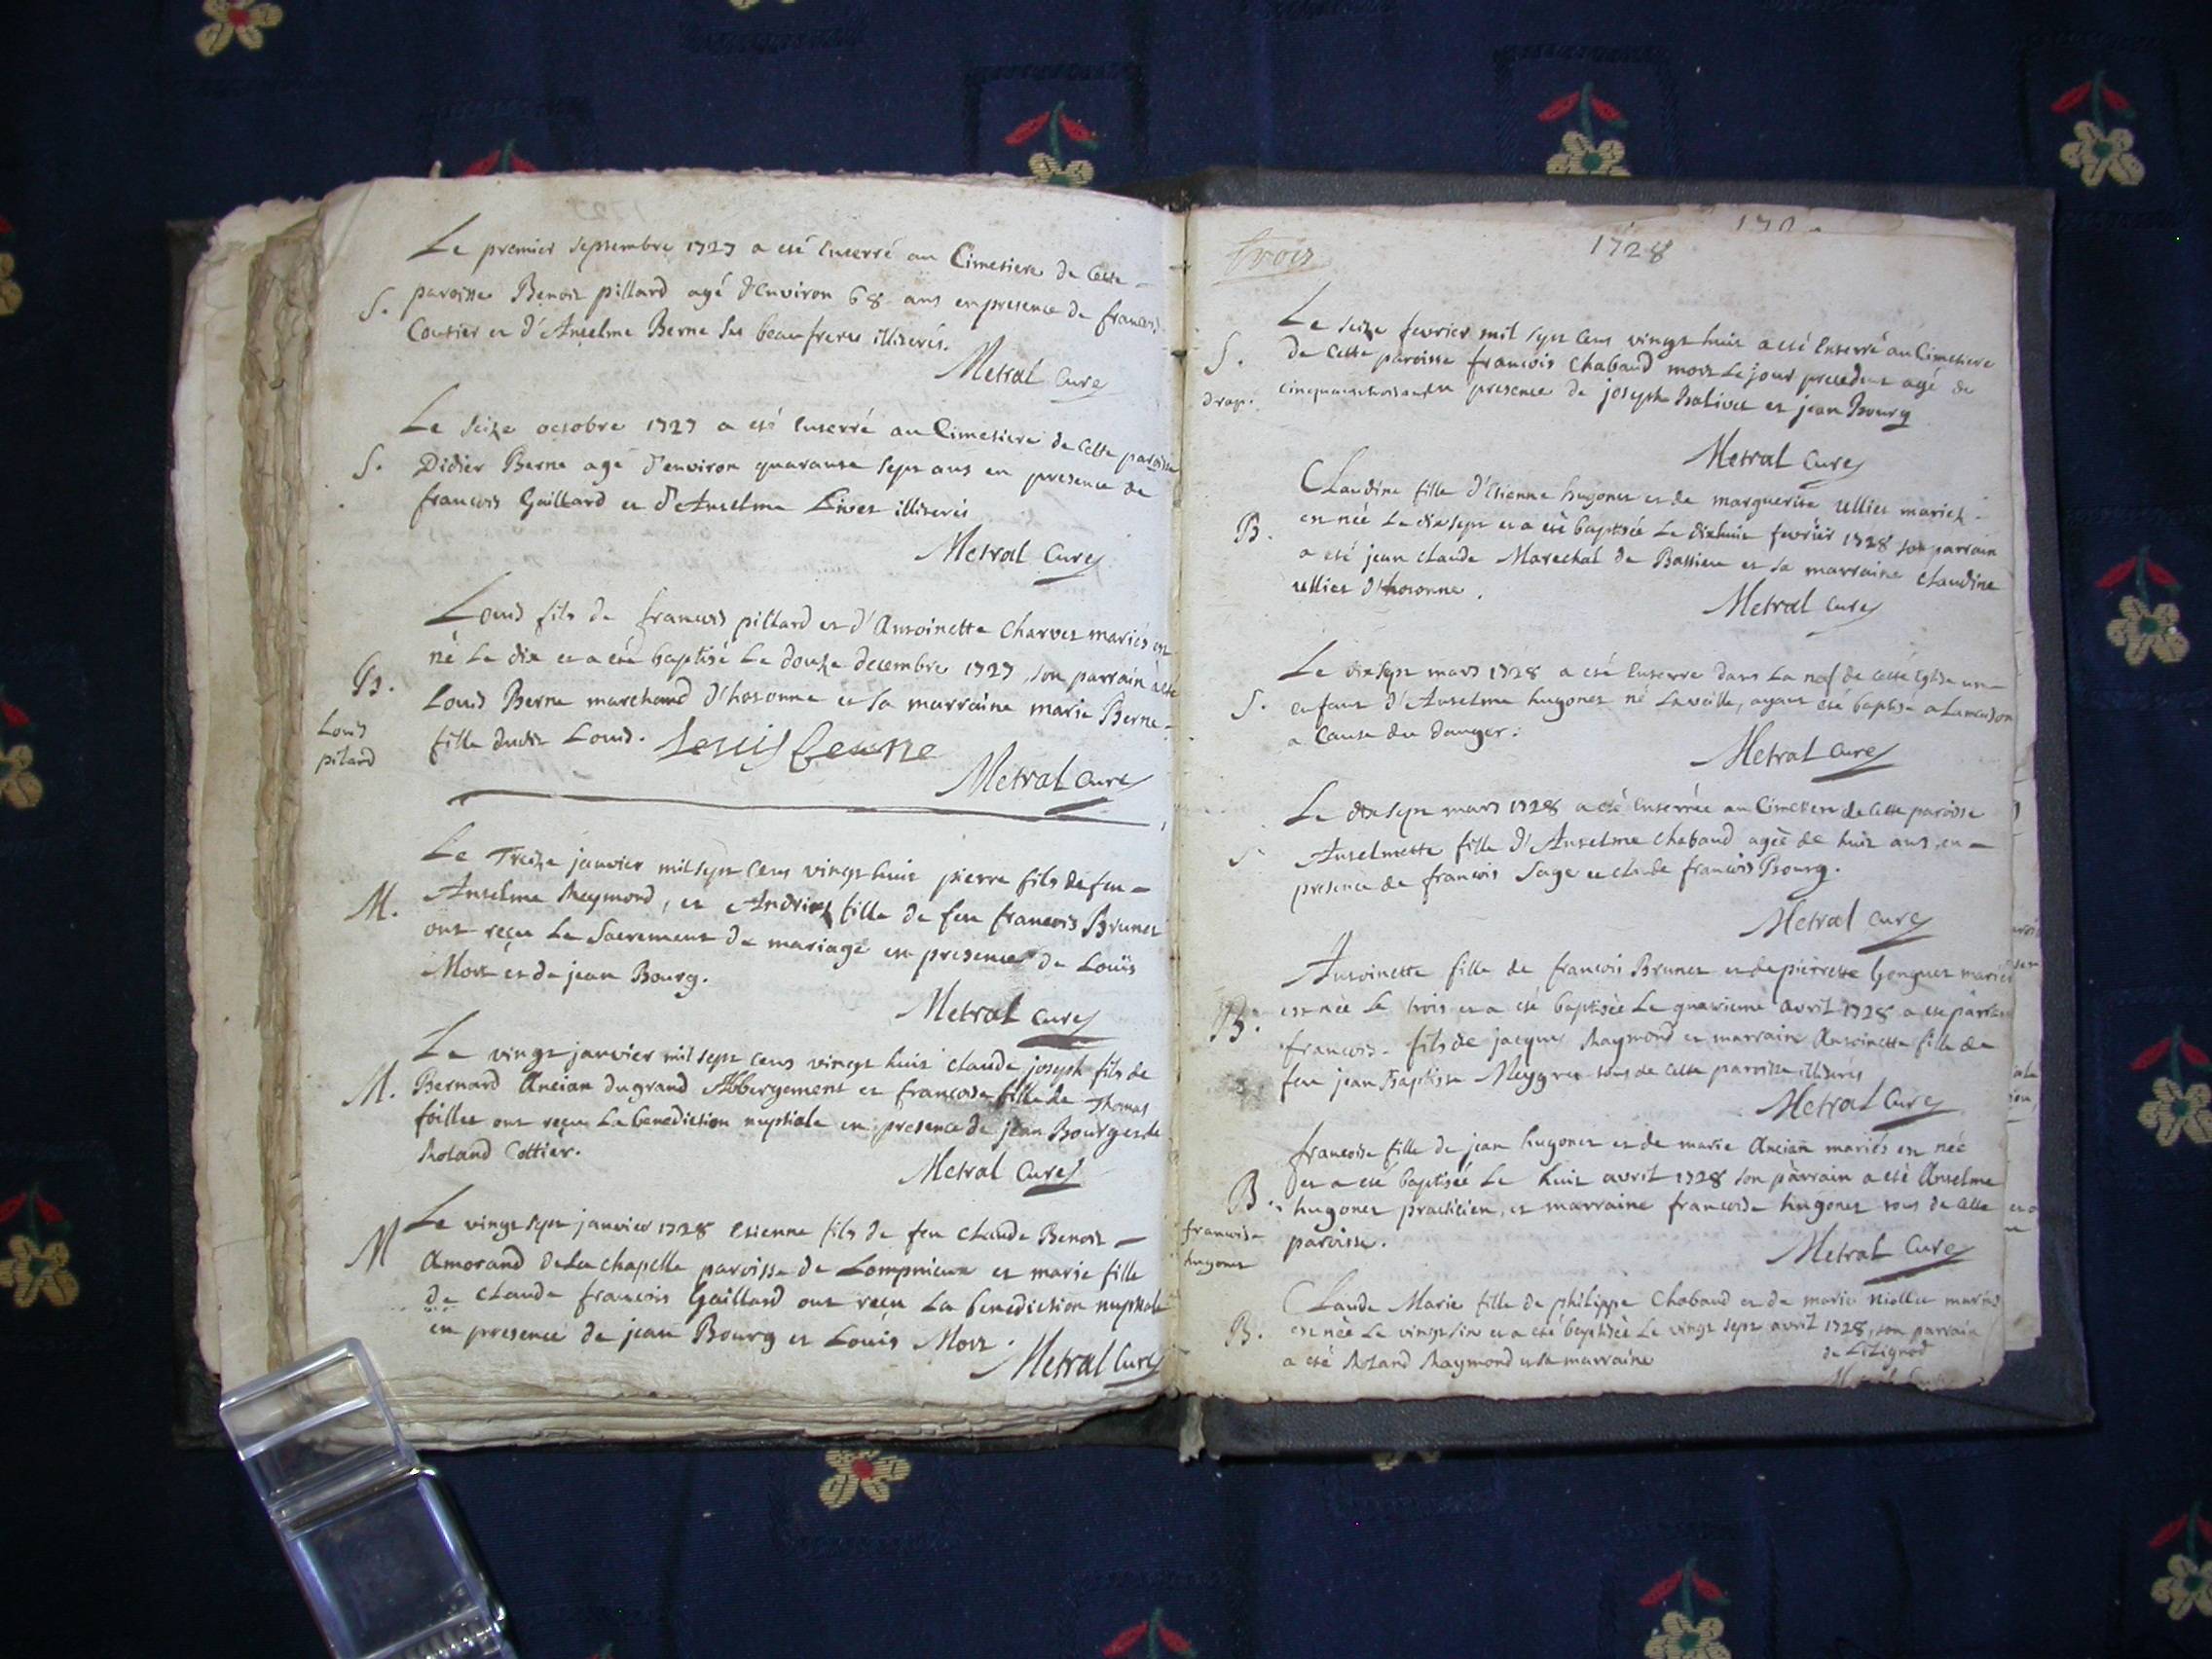 Le premier septembre 1727 a eté enterré au Cimetiere de cette
S. paroisse Benoit pillard agé d'environ 68 ans en presence de francois
Cottier et d'Anselme Berne ses beaufreres illiterés.
Metral Curé
Le seize octobre 1727 a eté enterré au Cimetiere de cette paroisse
S. Didier Berne agé d'environ quarante sept ans en presence de
francois Gaillard et d'Anselme illiterés
Metral Curé
Louis fils de francois pillard et d'Antoinette Charvet mariés est
né le dix et a eté baptisé le douze decembre 1727, son parrain a eté
B. Louis Berne marchand d'hotonne et sa marraine marie Berne
Louis pilard
fille dudit Louis. Louis berne
Metral Curé
Le Treize janvier mil sept cens vingt huit pierre fils de feu
M. Anselme Reymond, et fille de feu francois Brunet
ont reçu le Sacrement de mariage en presence de Louïs
Mort et de jean Bourg.
Metral Curé
Le vingt janvier mil sept cens vingt huit claude joseph fils de
M. Bernard Ancian du grand Abbergement et francoise fille de Thomas
ont reçu la benediction nuptiale en presence de jean Bourg et de
Roland Cottier.
Metral Curé
Le vingt sept janvier 1728 Etienne fils de feu Claude Benoit
M Amorand de La chapelle paroisse de Lompnieux et marie fille
de Claude francois Gaillard ont reçu la benediction nuptiale
en presence de jean Bourg et Louïs Mort.
Metral Curé
trois
1728
Le seize fevrier mil sept cens vingt huit a eté enterré au Cimetiere
S. de cette paroisse francois Chaband mort le jour precedent agé de
drap. cinquante trois ans en presence de joseph Balivet et jean Bourg
Metral Curé
Claudine fille d'Etienne hugonet et de marguerite ullier mariés
B. est née le dix sept et a eté baptisée le dixhuit fevrier 1728 son parrain
a eté jean Claude Marechal de Bassieu et sa marraine Claudine
ullier d'hotonne.
Metral Curé
Le dix sept mars 1728 a eté enterré dans la nef de cette Eglise un
S. enfant d'Anselme hugonet né la veille, ayant eté baptisé a la maison
a cause du danger.
Metral Curé
Le dix sept mars 1728 a eté enterrée au Cimetiere de cette paroisse
S Anselmette fille d'Anselme Chaband agée de huit ans en
presence de francois Sage et claude francois Bourg.
Metral Curé
Antoinette fille de francois Brunet et de pierrette mariés
B. est née le trois et a eté baptisée le quatrieme avril 1728 a eté parrain
francois fils de jacque Raymond et marraine Antoinette fille de
feu jean Baptiste Meygret tous de cette paroisse illiterés
Metral Curé
francoise fille de jean hugonet et de marie Ancian mariés est née
et a eté baptisée le huit avril 1728 son parrain a eté Anselme
B. hugonet practicien, et marraine francoise hugonet tous de cette
francoise hugonet
paroisse.
Metral Curé
Claude Marie fille de philippe Chaband et de marie mariés
B. est née le vingt six et a eté baptisée le vingt sept avril 1728, son parrain
a eté Roland Raymond et sa marraine
de Lilignod